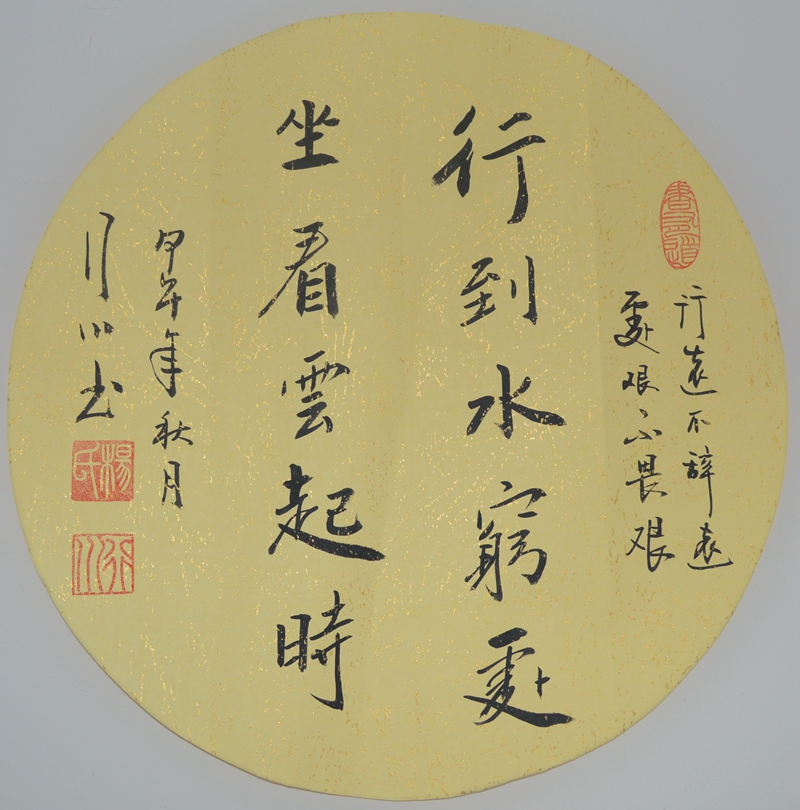 行遠不辭遠
處艱不畏艱
行到水窮處
坐看雲起時
甲午年秋月
行川書
楊氏
行川